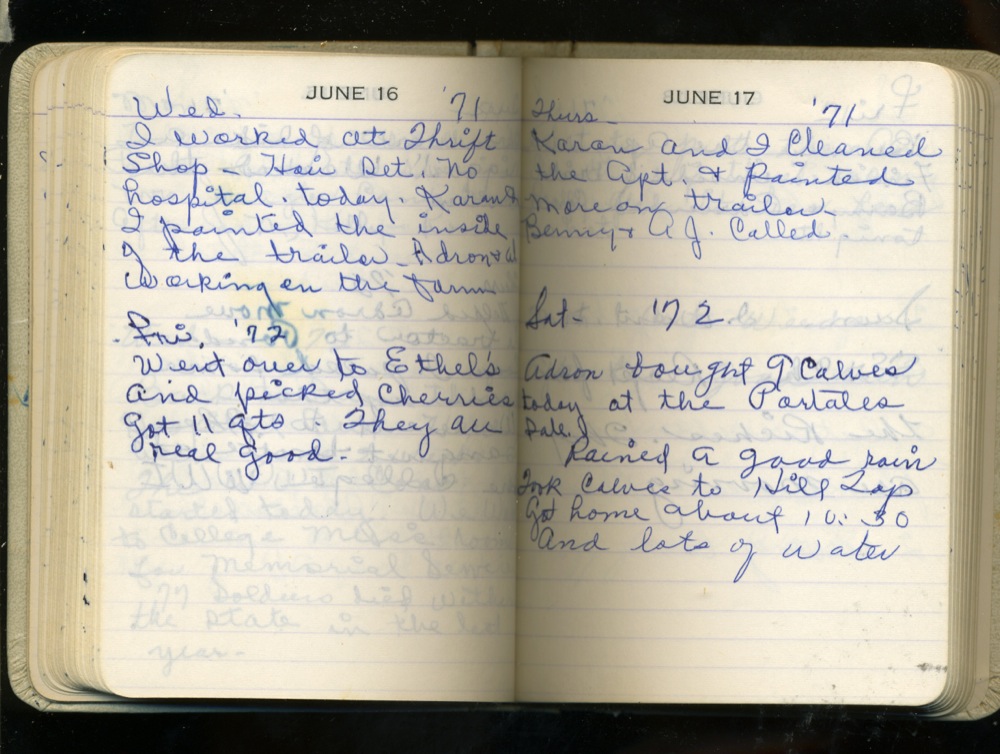 JUNE 16
Wed. '71
I worked at Thrift
Shop - Hair Set. No
hospital. today. Karan &
I painted the inside
of the trailer - Adron &
Working on the Farm
Fri, '72
Went over to Ethel's
And picked Cherries
Got 11 qts. They are
real good -
started today. We
to College
for Memorial
77 Soldiers died with
the state in the last
year -
JUNE 17
Thurs - '71
Karan and I Cleaned
the Apt. & Painted
More on trailer -
Benny & A J. Called.
Sat - '72
Adron bought 9 Calves
today at the Portales
Sale.
Rained a good rain
Took Calves to Hill Top
Got home about 10:30
And lots of water